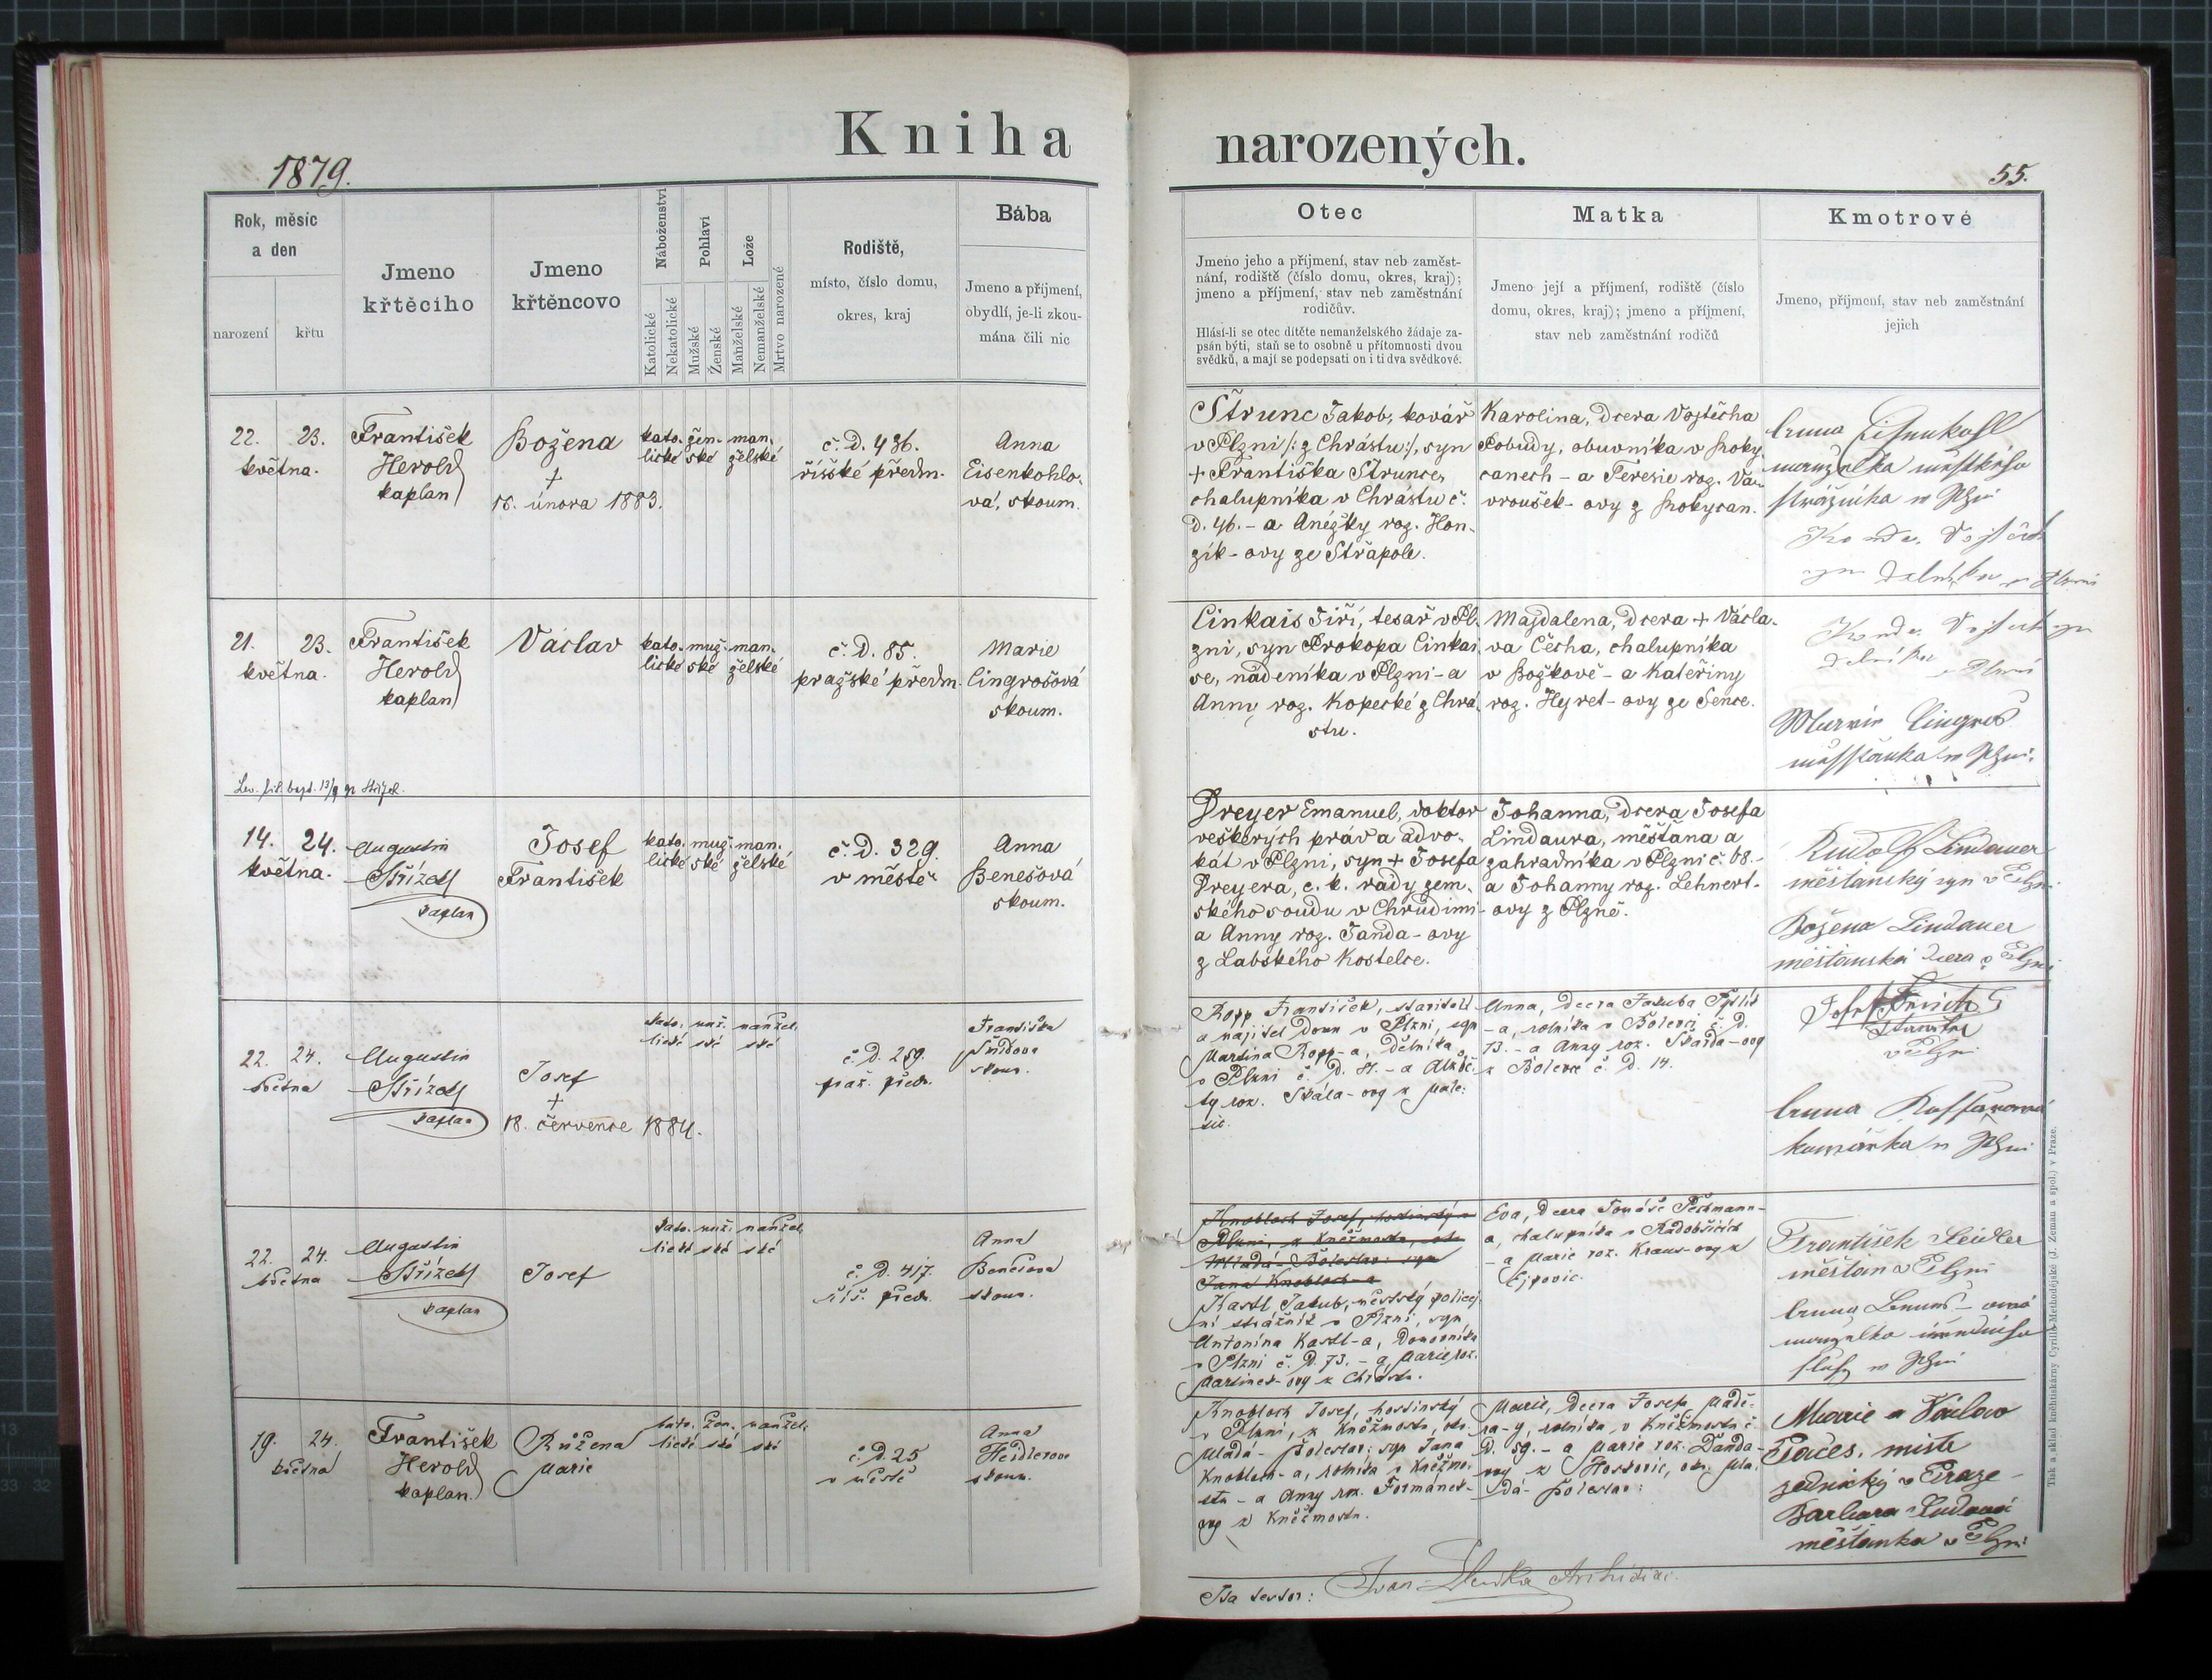 Kniha narozených.
1879.
55.
Rok, měsíc
a den
narození
křtu
Jmeno
křtěcího
Jmeno
křtěncovo
Náboženství
Katolické
Nekatolické
Pohlaví
Mužské
Ženské
Lože
Manželské
Nemanželské
Mrtvo narozené
Rodiště,
místo, číslo domu,
okres, kraj
Bába
Jmeno a příjmení,
obydlí, je-li zkou-
mána čili nic
Otec
Jmeno jeho a příjmení, stav neb zaměst-
nání, rodiště (číslo domu, okres, kraj);
jmeno a příjmení, stav neb zaměstnání
rodičův.
Hlásí-li se otec dítěte nemanželského žádaje za-
psán býti, staň se to osobně u přítomnosti dvou
svědků, a mají se podepsati on i ti dva svědkové.
Matka
Jmeno její a příjmení, rodiště (číslo
domu, okres, kraj); jmeno a příjmení,
stav neb zaměstnání rodičů
Kmotrové
Jmeno, příjmení, stav neb zaměstnání
jejich
22. 23.
května.
František
Herold
kaplan
Božena
+
15. února 1883.
kato- žen- man-
lické ské želské
č. d. 436.
říšské předm.
Anna
Eisenkohlo-
vá, skoum.
Štrunc Jakob, kovář
v Plzni /: z Chrástu :/, syn
+ Františka Štrunce,
chalupníka v Chrástu č.
d. 46. - a Anéžky roz. Hon-
zík-ovy ze Střapole.
Karolina, dcera Vojtěcha
Pobudy, obuvníka v Roky-
canech - a Teresie roz. Va-
vroušek-ovy z Rokycan.
Anna Eisenkohl
manželka městského
strážníka v Plzni
Konda Vojtěch
syn dělníka v Plzni
21. 23.
května.
František
Herold
kaplan
Václav
kato- muž- man-
lické ské želské
č. d. 85.
pražské předm.
Marie
Cingrošová
skoum.
Cinkais Jiří, tesař v Pl-
zni, syn Prokopa Cinkai-
se, nádeníka v Plzni - a
Anny roz. Kopecké z Chrá-
stu.
Majdalena, dcera + Václa-
va Čecha, chalupníka
v Božkově - a Kateřiny
roz. Hyret-ovy ze Sence.
Konda Vojtěch syn
dělníka v Plzni
Marie Cingroš
měšťanka v Plzni.
14. 24.
května.
Augustin
Střízek
kaplan
Josef
František
kato- muž- man-
lické ské želské
č. d. 329.
v městě
Anna
Benešová
skoum.
Dreyer Emanuel, doktor
veškerých práv a advo-
kát v Plzni, syn + Josefa
Dreyera, c. k. rady zem-
ského soudu v Chrudimi
a Anny roz. Janda-ovy
z Labského Kostelce.
Johanna, dcera Josefa
Lindaura, měšťana a
zahradníka v Plzni č. 68.-
a Johanny roz. Lehnert-
ovy z Plzně.
Rudolf Lindauer
měšťanský syn v Plzni
Božena Lindauer
měšťanská dcera v Plzni
22. 24.
května
Augustin
Střízek
kaplan
Josef
+
18. července 1884.
kato- muž. manžel-
lické ské ské
č. d. 259.
praž. předm.
Františka
skoum.
Ropp František, stavitel
a majitel domu v Plzni, syn
Martina Ropp-a, dělníka
v Plzni č. d. 81. - a Alžbě-
ty roz. Skála-ovy z Male-
sic.
Anna, dcera Jakuba
-a, rolníka v Bolevci č. d.
13. - a Anny roz. Škarda-ovy
z Bolevce č. d. 14.
Josef
v Plzni
Anna
v Plzni
22. 24.
května
Augustin
Střízek
kaplan
Josef
kato- muž. manžel-
lické ské ské
č. d. 417.
říš. předm.
Anna
Benešova
skoum.
Knobloch Josef, hostinský v
Plzni, z Kněžmosta, okr.
Mladá-Boleslav: syn
Jana Knobloch-a
Kastl Jakub, městský policej-
ní strážník v Plzni, syn
Antonína Kastl-a, domovníka
v Plzni č. d. 73. - a Marie roz.
Martinec-ovy z Chrástu.
Eva, dcera Tomáše Pechmann-
a, chalupníka v Radobčicích
- a Marie roz. Kraus-ovy z
Ejpovic.
František Heidler
měšťan v Plzni
Anna
manželka
v Plzni
19. 24.
května
František
Herold
kaplan.
Růžena
Marie
kato- žen. manžel-
lické ské ské
č. d. 25
v městě
Anna
Heidlerova
skoum.
Knobloch Josef, hostinský
v Plzni, z Kněžmostu, okr.
Mladá-Boleslav: syn Jana
Knobloch-a, rolníka v Kněžmo-
stu - a Anny roz. Formánek-
ovy z Kněžmostu.
Marie, dcera Josefa Madě-
ra-y, rolníka v Kněžmostu č.
d. 59. - a Marie roz. Danda-
ovy z Hoskovic, okr. Mla-
dá-Boleslav:
Marie a Václav
mistr
zednický v Praze -
Barbara
měšťanka v Plzni
Tisk a sklad knihtiskárny Cyrillo-Methodějské (J. Zeman a spol.) v Praze.